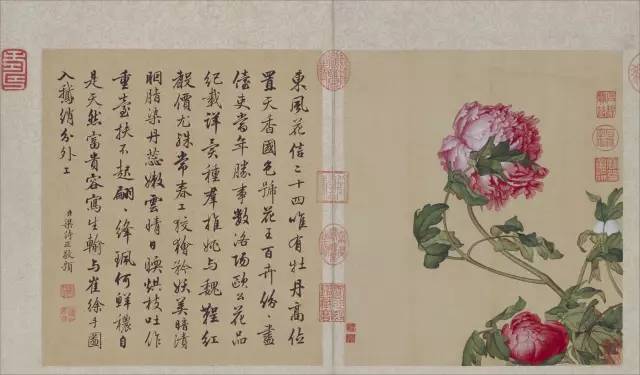 東風花信二十四唯有牡丹高位
置天香國色號花王百卉份〻盡
吏當年勝事數洛陽歐公花品
紀載詳異種羣推姚与魏鞓紅
縠價尤殊常春工狡獪矜妖美暗漬
胭脂染丹蕊嫩雲晴日暎烘枝吐作
重臺扶不起翩〻絳珮何鮮穠自
是天然富貴容寫生輸与崔徐手圖
入鵝綃分外工
臣梁詩正敬題